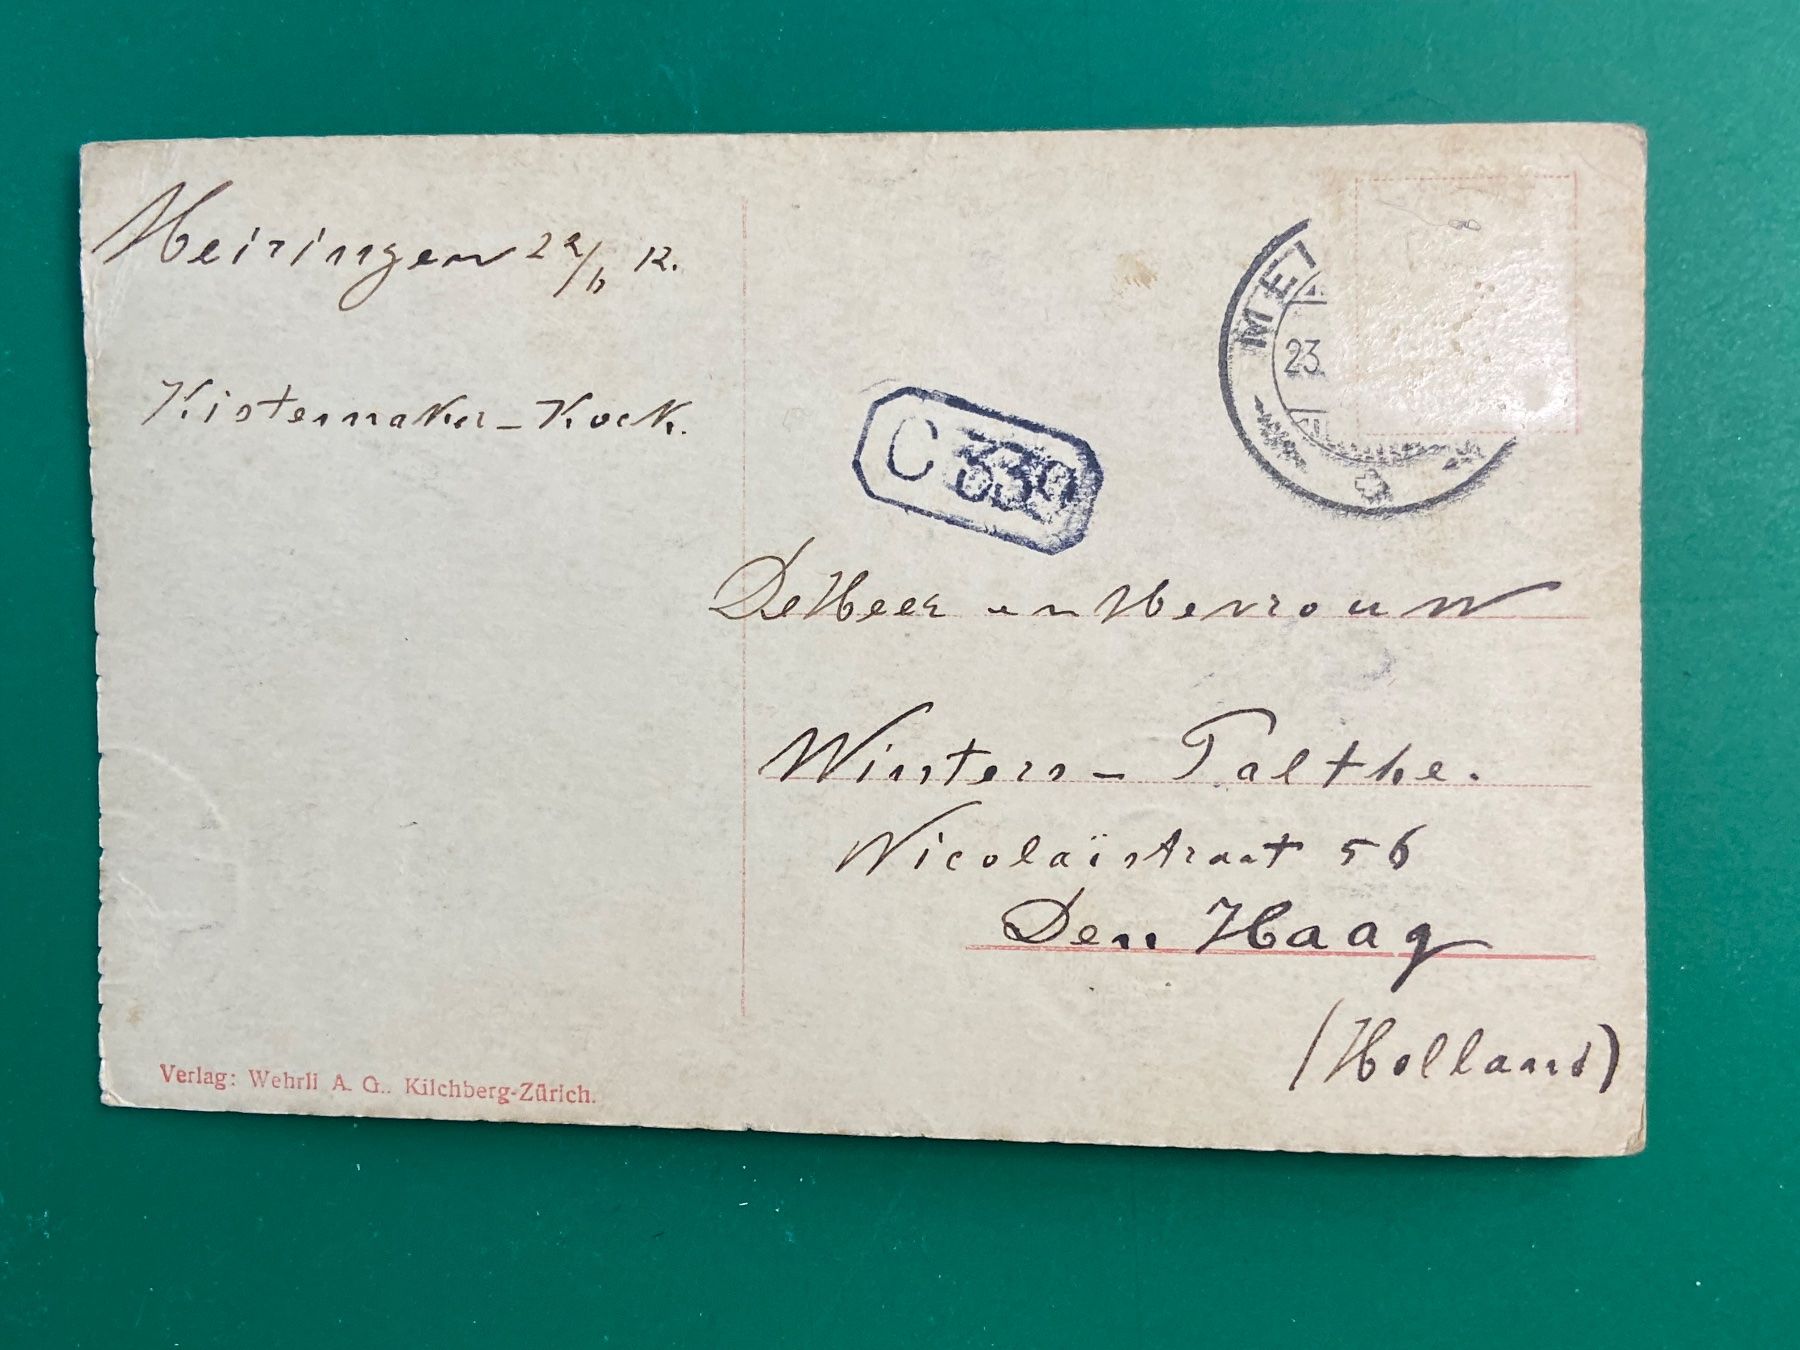 Meiringen 22/6 12.
Kisternaker-Kock.
MEI
23.
C 339
De Heer en Mevrouw
Winters-Palthe.
Nicolaïstraat 56
Den Haag
(Holland)
Verlag: Wehrli A. G., Kilchberg-Zürich.